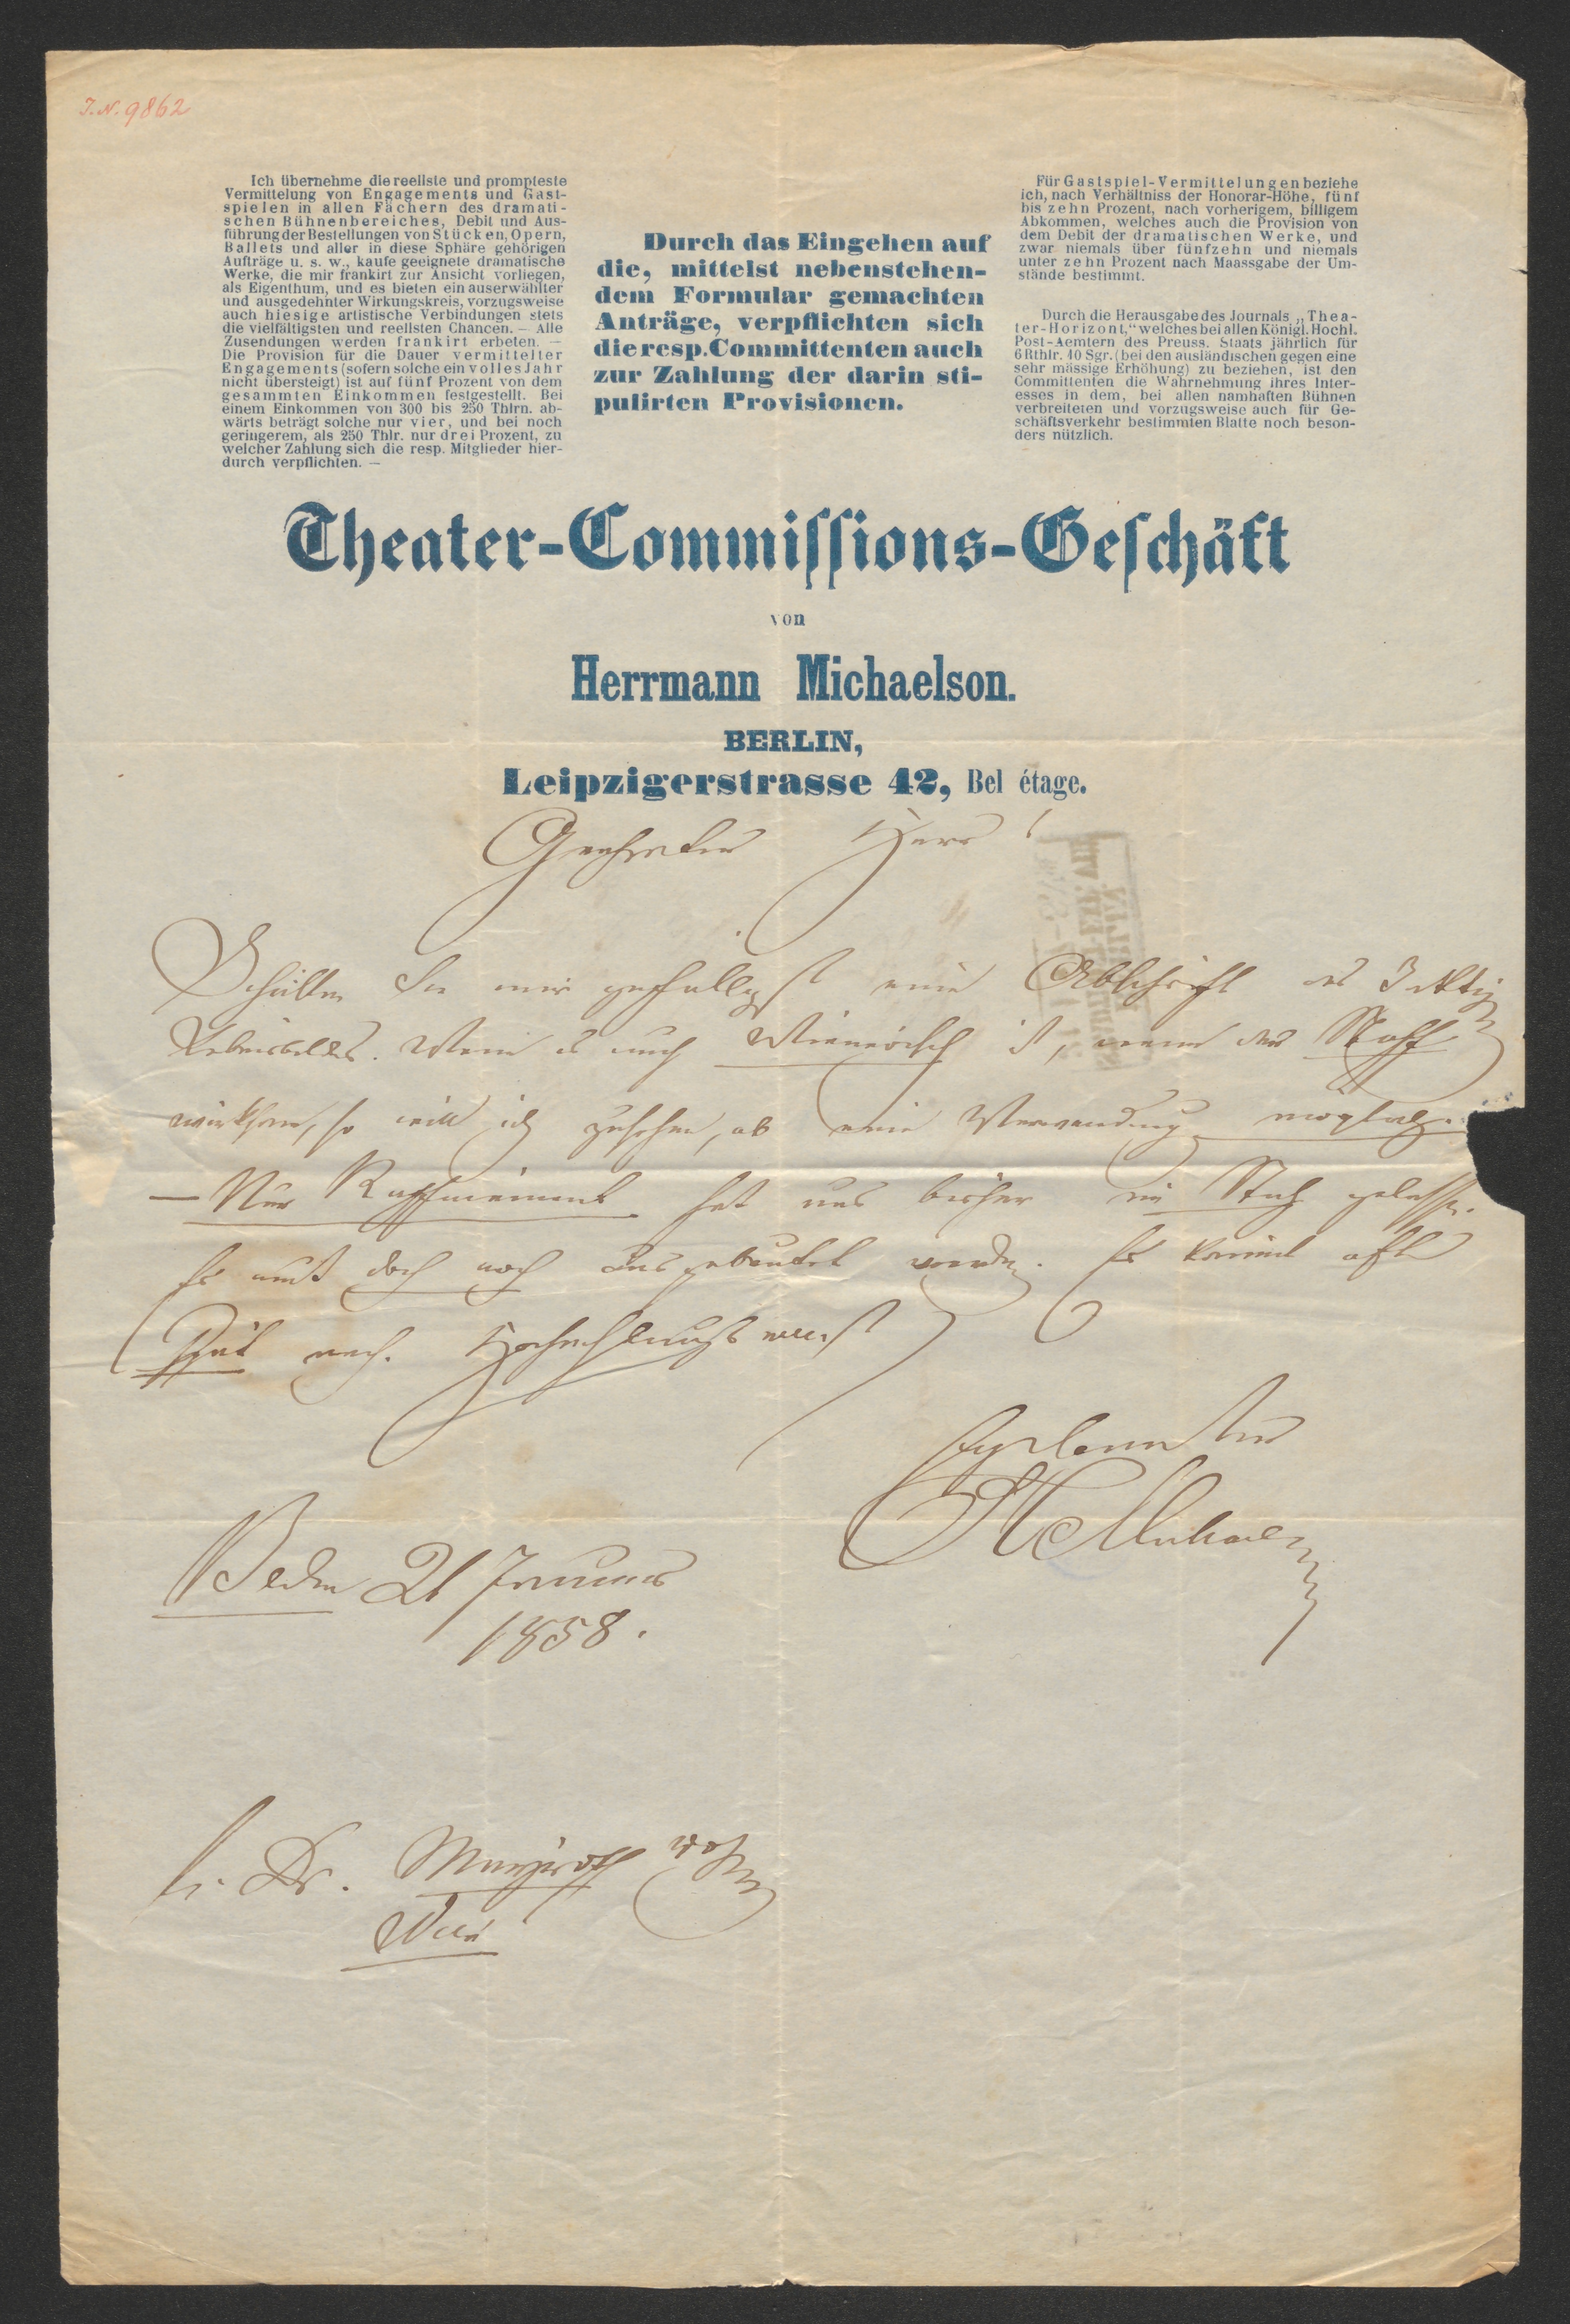 J.N. 9862
Ich übernehme die reellste und prompteste
Vermittelung von Engagements und Gast-
spielen in allen Fächern des dramati-
schen Bühnenbereiches, Debit und Aus-
führung der Bestellungen von Stücken, Opern,
Ballets und aller in diese Sphäre gehörigen
Aufträge u. s. w., kaufe geeignete dramatische
Werke, die mir frankirt zur Ansicht vorliegen,
als Eigenthum, und es bieten ein auserwählter
und ausgedehnter Wirkungskreis, vorzugsweise
auch hiesige artistische Verbindungen stets
die vielfältigsten und reellsten Chancen. — Alle
Zusendungen werden frankirt erbeten. —
Die Provision für die Dauer vermittelter
Engagements (sofern solche ein volles Jahr
nicht übersteigt) ist auf fünf Prozent von dem
gesammten Einkommen festgestellt. Bei
einem Einkommen von 300 bis 250 Thlrn. ab-
wärts beträgt solche nur vier, und bei noch
geringerem, als 250 Thlr. nur drei Prozent, zu
welcher Zahlung sich die resp. Mitglieder hier-
durch verpflichten. —
Durch das Eingehen auf
die, mittelst nebenstehen-
dem Formular gemachten
Anträge, verpflichten sich
die resp. Committenten auch
zur Zahlung der darin sti-
pulirten Provisionen.
Für Gastspiel-Vermittelungen beziehe
ich, nach Verhältniss der Honorar-Höhe, fünf
bis zehn Prozent, nach vorherigem, billigem
Abkommen, welches auch die Provision von
dem Debit der dramatischen Werke, und
zwar niemals über fünfzehn und niemals
unter zehn Prozent nach Maassgabe der Um-
stände bestimmt.
Durch die Herausgabe des Journals „Thea-
ter-Horizont," welches bei allen Königl. Hochl.
Post-Aemtern des Preuss. Staats jährlich für
6 Rthlr. 10 Sgr. (bei den ausländischen gegen eine
sehr mässige Erhöhung) zu beziehen, ist den
Committenten die Wahrnehmung ihres Inter-
esses in dem, bei allen namhaften Bühnen
verbreiteten und vorzugsweise auch für Ge-
schäftsverkehr bestimmten Blatte noch beson-
ders nützlich.
Theater-Commissions-Geschäft
von
Herrmann Michaelson.
BERLIN,
Leipzigerstrasse 42, Bel étage.
Geehrter Herr!
Schicken Sie mir gefälligst eine Abschrift des 3 aktig
Lebensbildes. Wenn es auch Wienerisch ist, wenn der Stoff
wirksam, so will ich zusehen, ob eine Verwendung möglich.
— Nur Raffinement hat uns bisher im Stich gelassen.
Es muß doch noch ausgebeutet werden. Es kommt oft
Spät nach. Hochachtungsvollst
Ergebenster
H Michaelson
Berlin 21 Januar
1858.
H. Dr. wohl
Wien